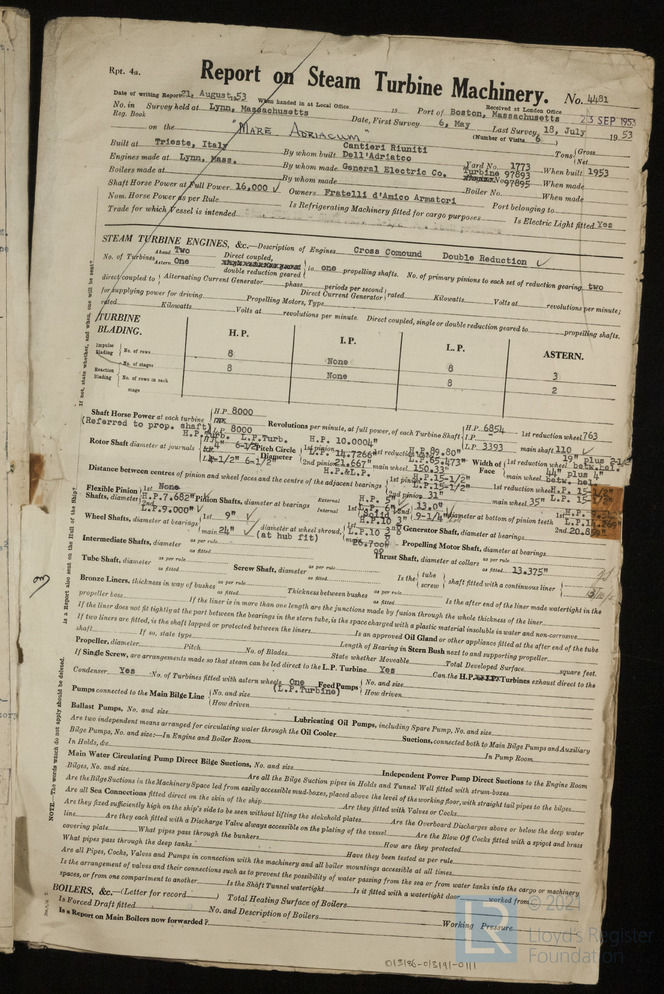 Rpt. 4a.
Report on Steam Turbine Machinery. No. 4481
Date of writing Report 21, August, 53 When handed in at Local Office 19 Received at London Office 23 SEP 1953
No. in Reg. Book Survey held at Lynn, Massachusetts Port of Boston, Massachusetts
Date, First Survey 6, May Last Survey, 18, July 1953
on the "MARE ADRIACUM" (Number of Visits 6)
Tons Gross Net
Built at Trieste, Italy By whom built Cantieri Riuniti Dell'Adriatco Yard No. 1773 When built 1953
Engines made at Lynn, Mass. By whom made General Electric Co. Turbine 97893 97895 When made
Boilers made at By whom made Boiler No. When made
Shaft Horse Power at Full Power 16,000 Owners Fratelli d'Amico Armatori Port belonging to
Nom. Horse Power as per Rule Is Refrigerating Machinery fitted for cargo purposes Is Electric Light fitted Yes
Trade for which Vessel is intended
STEAM TURBINE ENGINES, &c.—Description of Engines Cross Comound Double Reduction
No. of Turbines Ahead Two Astern One Direct coupled, double reduction geared to one propelling shafts. No. of primary pinions to each set of reduction gearing two
direct coupled to Alternating Current Generator phase periods per second Direct Current Generator rated Kilowatts Volts at revolutions per minute;
for supplying power for driving Propelling Motors, Type
rated Kilowatts Volts at revolutions per minute. Direct coupled, single or double reduction geared to propelling shafts.
TURBINE BLADING. H.P. I.P. L.P. ASTERN.
Impulse Blading No. of rows 8 None 8 3
Reaction Blading No. of stages 8 None 8 2
No. of rows in each stage
Shaft Horse Power at each turbine H.P. 8000 L.P. 8000
(Referred to prop. shaft)
Revolutions per minute, at full power, of each Turbine Shaft H.P. 6854 L.P. 3393 1st reduction wheel 763 main shaft 110
Rotor Shaft diameter at journals H.P. Turb. L.P. Turb. 4" 6-1/2" 4-1/2" 6-1/2" Pitch Circle Diameter 1st pinion H.P. 10.0004" L.P. 14.7266" 2nd pinion 21.667" 1st reduction wheel H.P. 89.80" L.P. 65.473" main wheel 150.33" Width of Face 1st reduction wheel 19" plus 2-1/2" betw. hel. main wheel 44" plus 4" betw. hel
Distance between centres of pinion and wheel faces and the centre of the adjacent bearings H.P.&L.P. 1st pinion H.P. 15-1/2" L.P. 15-1/2" 2nd pinion 31" 1st reduction wheel H.P. 15-1/2" L.P. 15-1/2" main wheel 35"
Flexible Pinion Shafts, diameter 1st None H.P. 7.682" L.P. 9.000" Pinion Shafts, diameter at bearings External Internal 1st H.P. 5" 2nd 13.0" 9-1/4" diameter at bottom of pinion teeth 2nd 20.859"
Wheel Shafts, diameter at bearings 1st 9" main 24" diameter at wheel shroud, (at hub fit) H.P. 10 L.P. 10 26.700" Generator Shaft, diameter at bearings Propelling Motor Shaft, diameter at bearings
Intermediate Shafts, diameter as per rule as fitted Thrust Shaft, diameter at collars as per rule as fitted 13.375"
Tube Shaft, diameter as per rule as fitted Screw Shaft, diameter as per rule as fitted Is the tube screw shaft fitted with a continuous liner
Bronze Liners, thickness in way of bushes as per rule as fitted Thickness between bushes as per rule as fitted Is the after end of the liner made watertight in the
propeller boss If the liner is in more than one length are the junctions made by fusion through the whole thickness of the liner
If the liner does not fit tightly at the part between the bearings in the stern tube, is the space charged with a plastic material insoluble in water and non-corrosive
If two liners are fitted, is the shaft lapped or protected between the liners Is an approved Oil Gland or other appliance fitted at the after end of the tube
shaft If so, state type Length of Bearing in Stern Bush next to and supporting propeller
Propeller, diameter Pitch No. of Blades State whether Moveable Total Developed Surface square feet.
If Single Screw, are arrangements made so that steam can be led direct to the L.P. Turbine Yes Can the H.P. Turbines exhaust direct to the
Condenser Yes No. of Turbines fitted with astern wheels One (L.P. Turbine) Feed Pumps No. and size How driven
Pumps connected to the Main Bilge Line No. and size How driven
Ballast Pumps, No. and size Lubricating Oil Pumps, including Spare Pump, No. and size
Are two independent means arranged for circulating water through the Oil Cooler Suctions, connected both to Main Bilge Pumps and Auxiliary
Bilge Pumps, No. and size:—In Engine and Boiler Room In Pump Room
In Holds, &c.
Main Water Circulating Pump Direct Bilge Suctions, No. and size Independent Power Pump Direct Suctions to the Engine Room
Bilges, No. and size Are all the Bilge Suction pipes in Holds and Tunnel Well fitted with strum-boxes
Are the Bilge Suctions in the Machinery Space led from easily accessible mud-boxes, placed above the level of the working floor, with straight tail pipes to the bilges
Are all Sea Connections fitted direct on the skin of the ship Are they fitted with Valves or Cocks
Are they fixed sufficiently high on the ship's side to be seen without lifting the stokehold plates Are the Overboard Discharges above or below the deep water
line Are they each fitted with a Discharge Valve always accessible on the plating of the vessel Are the Blow Off Cocks fitted with a spigot and brass
covering plate What pipes pass through the bunkers How are they protected
What pipes pass through the deep tanks Have they been tested as per rule
Are all Pipes, Cocks, Valves and Pumps in connection with the machinery and all boiler mountings accessible at all times
Is the arrangement of valves and their connections such as to prevent the possibility of water passing from the sea or from water tanks into the cargo or machinery
spaces, or from one compartment to another Is the Shaft Tunnel watertight Is it fitted with a watertight door worked from
BOILERS, &c.—(Letter for record) Total Heating Surface of Boilers
Is Forced Draft fitted No. and Description of Boilers Working Pressure
Is a Report on Main Boilers now forwarded?
NOTE.—The words which do not apply should be deleted.
Is a Report also sent on the Hull of the Ship?
If not, state whether, and when, one will be sent?
© 2021
Lloyd's Register
Foundation
013186-013191-0111